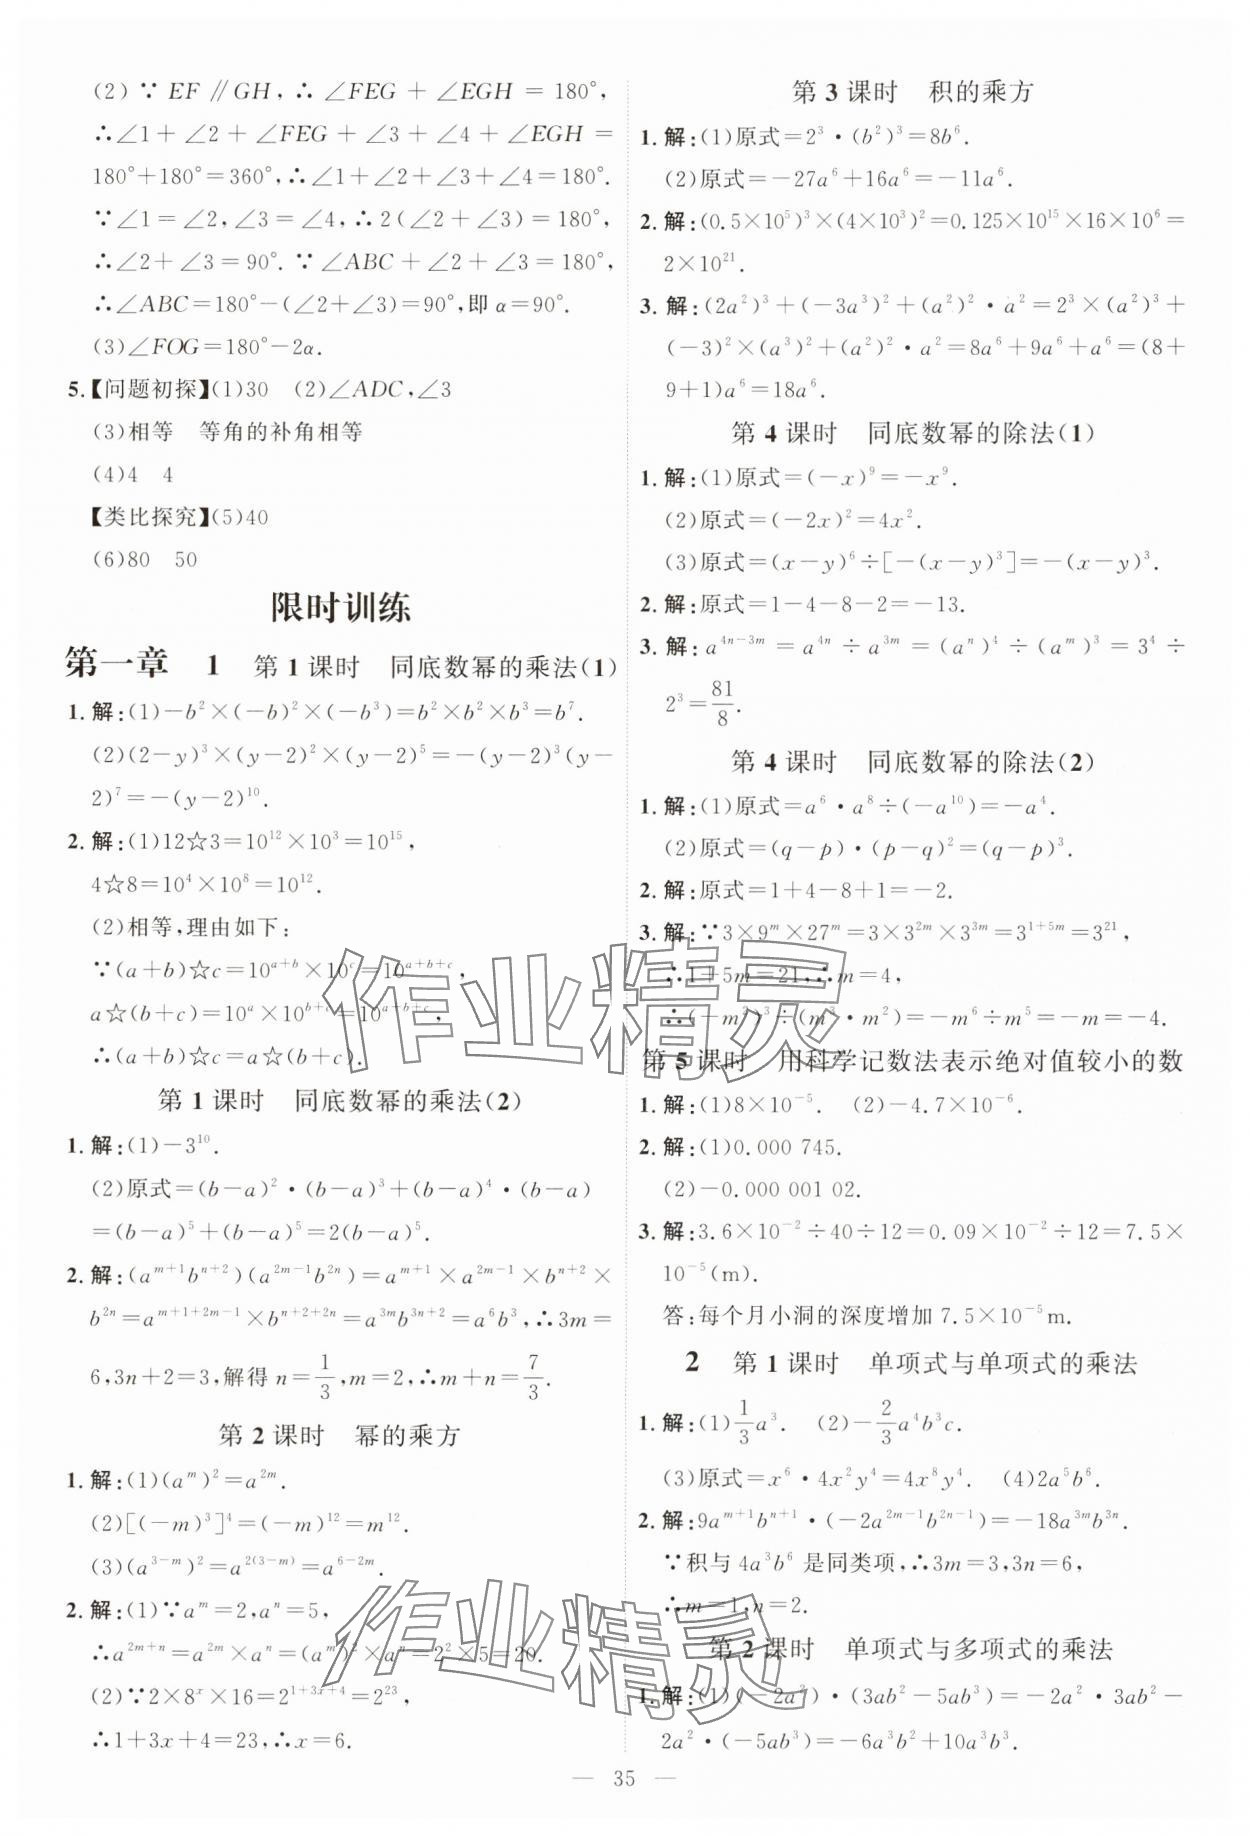 (2)∵EF∥GH,∴∠FEG+∠EGH=180°,
∴∠1+∠2+∠FEG+∠3+∠4+∠EGH=
180°+180°=360°,∴∠1+∠2+∠3+∠4=180°.
∵∠1=∠2,∠3=∠4,∴2(∠2+∠3)=180°,
∴∠2+∠3=90°.∵∠ABC+∠2+∠3=180°,
∴∠ABC=180°-(∠2+∠3)=90°,即α=90°.
(3)∠FOG=180°-2α.
5.【问题初探】(1)30 (2)∠ADC,∠3
(3)相等 等角的补角相等
(4)4 4
【类比探究】(5)40
(6)80 50
限时训练
第一章 1 第1课时 同底数幂的乘法(1)
1.解:(1)-b²×(-b)²×(-b³)=b²×b²×b³=b⁷.
(2)(2-y)³×(y-2)²×(y-2)⁵=-(y-2)³(y-
2)⁷=-(y-2)¹⁰.
2.解:(1)12☆3=10¹²×10³=10¹⁵,
4☆8=10⁴×10⁸=10¹².
(2)相等,理由如下:
∵(a+b)☆c=10^{a+b}×10^{c}=10^{a+b+c},
a☆(b+c)=10^{a}×10^{b+c}=10^{a+b+c},
∴(a+b)☆c=a☆(b+c).
第1课时 同底数幂的乘法(2)
1.解:(1)-3¹⁰.
(2)原式=(b-a)²·(b-a)³+(b-a)⁴·(b-a)
=(b-a)⁵+(b-a)⁵=2(b-a)⁵.
2.解:(a^{m+1}b^{n+2})(a^{2m-1}b^{2n})=a^{m+1}×a^{2m-1}×b^{n+2}×
b^{2n}=a^{m+1+2m-1}×b^{n+2+2n}=a^{3m}b^{3n+2}=a⁶b³,∴3m=
6,3n+2=3,解得n=1/3,m=2,∴m+n=7/3.
第2课时 幂的乘方
1.解:(1)(a^{m})²=a^{2m}.
(2)[(-m)³]⁴=(-m)¹²=m¹².
(3)(a^{3-m})²=a^{2(3-m)}=a^{6-2m}.
2.解:(1)∵a^{m}=2,a^{n}=5,
∴a^{2m+n}=a^{2m}×a^{n}=(a^{m})²×a^{n}=2²×5=20.
(2)∵2×8^{x}×16=2^{1+3x+4}=2²³,
∴1+3x+4=23,∴x=6.
第3课时 积的乘方
1.解:(1)原式=2³·(b²)³=8b⁶.
(2)原式=-27a⁶+16a⁶=-11a⁶.
2.解:(0.5×10⁵)³×(4×10³)²=0.125×10¹⁵×16×10⁶=
2×10²¹.
3.解:(2a²)³+(-3a³)²+(a²)²·a²=2³×(a²)³+
(-3)²×(a³)²+(a²)²·a²=8a⁶+9a⁶+a⁶=(8+
9+1)a⁶=18a⁶.
第4课时 同底数幂的除法(1)
1.解:(1)原式=(-x)⁹=-x⁹.
(2)原式=(-2x)²=4x².
(3)原式=(x-y)⁶÷[-(x-y)³]=-(x-y)³.
2.解:原式=1-4-8-2=-13.
3.解:a^{4n-3m}=a^{4n}÷a^{3m}=(a^{n})⁴÷(a^{m})³=3⁴÷
2³=81/8.
第4课时 同底数幂的除法(2)
1.解:(1)原式=a⁶·a⁸÷(-a¹⁰)=-a⁴.
(2)原式=(q-p)·(p-q)²=(q-p)³.
2.解:原式=1+4-8+1=-2.
3.解:∵3×9^{m}×27^{m}=3×3^{2m}×3^{3m}=3^{1+5m}=3²¹,
∴1+5m=21,∴m=4,
∴(-m²)³÷(m³·m²)=-m⁶÷m⁵=-m=-4.
第5课时 用科学记数法表示绝对值较小的数
1.解:(1)8×10⁻⁵. (2)-4.7×10⁻⁶.
2.解:(1)0.000 745.
(2)-0.000 001 02.
3.解:3.6×10⁻²÷40÷12=0.09×10⁻²÷12=7.5×
10⁻⁵(m).
答:每个月小洞的深度增加7.5×10⁻⁵m.
2 第1课时 单项式与单项式的乘法
1.解:(1)1/3a³. (2)-2/3a⁴b³c.
(3)原式=x⁶·4x²y⁴=4x⁸y⁴. (4)2a⁵b⁶.
2.解:9a^{m+1}b^{n+1}·(-2a^{2m-1}b^{2n-1})=-18a^{3m}b^{3n}.
∵积与4a³b⁶是同类项,∴3m=3,3n=6,
∴m=1,n=2.
第2课时 单项式与多项式的乘法
1.解:(1)(-2a²)·(3ab²-5ab³)=-2a²·3ab²-
2a²·(-5ab³)=-6a³b²+10a³b³.
— 35 —
作业精灵
作业精灵